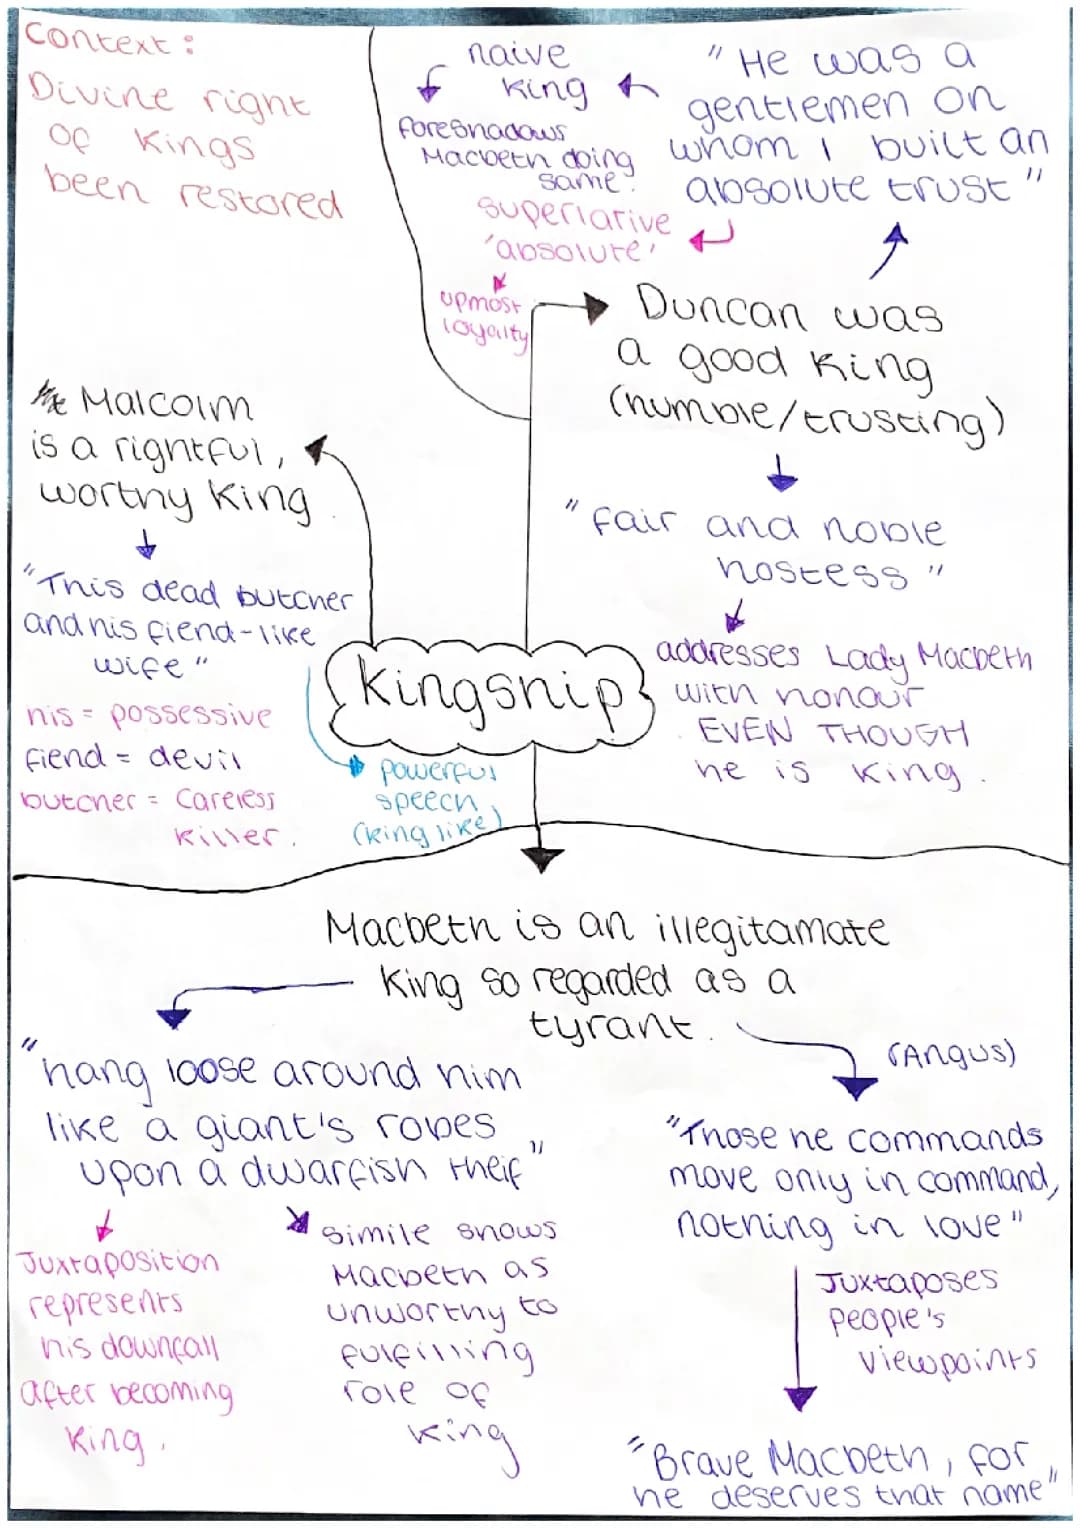 Context:
Divine right
of Kings
been restored
naive
King
foreshadows
Macbeth doing
same.
"He was a
gentlemen on
whom I built an
absolute trust"
superlative
'absolute'
upmost
loyalty
Duncan was
a good King
(humble/trusting)
"fair and noble
hostess"
addresses Lady Macbeth
with honour
EVEN THOUGH
he is King.
Malcolm
is a rightful,
worthy King
"This dead butcher
and his fiend-like
wife"
his = possessive
fiend = devil
butcher = Careless
killer.
powerful
speech
(king like)
Kingship
Macbeth is an illegitamate
King so regarded as a
tyrant.
"hang loose around him
like a giant's robes
upon a dwarfish theif"
Juxtaposition
represents
his downfall
after becoming
King.
Simile shows
Macbeth as
unworthy to
fulfilling
role of
King
(Angus)
"Those he commands
move only in command,
nothing in love"
Juxtaposes
People's
viewpoints
"Brave Macbeth, for
he deserves that name"